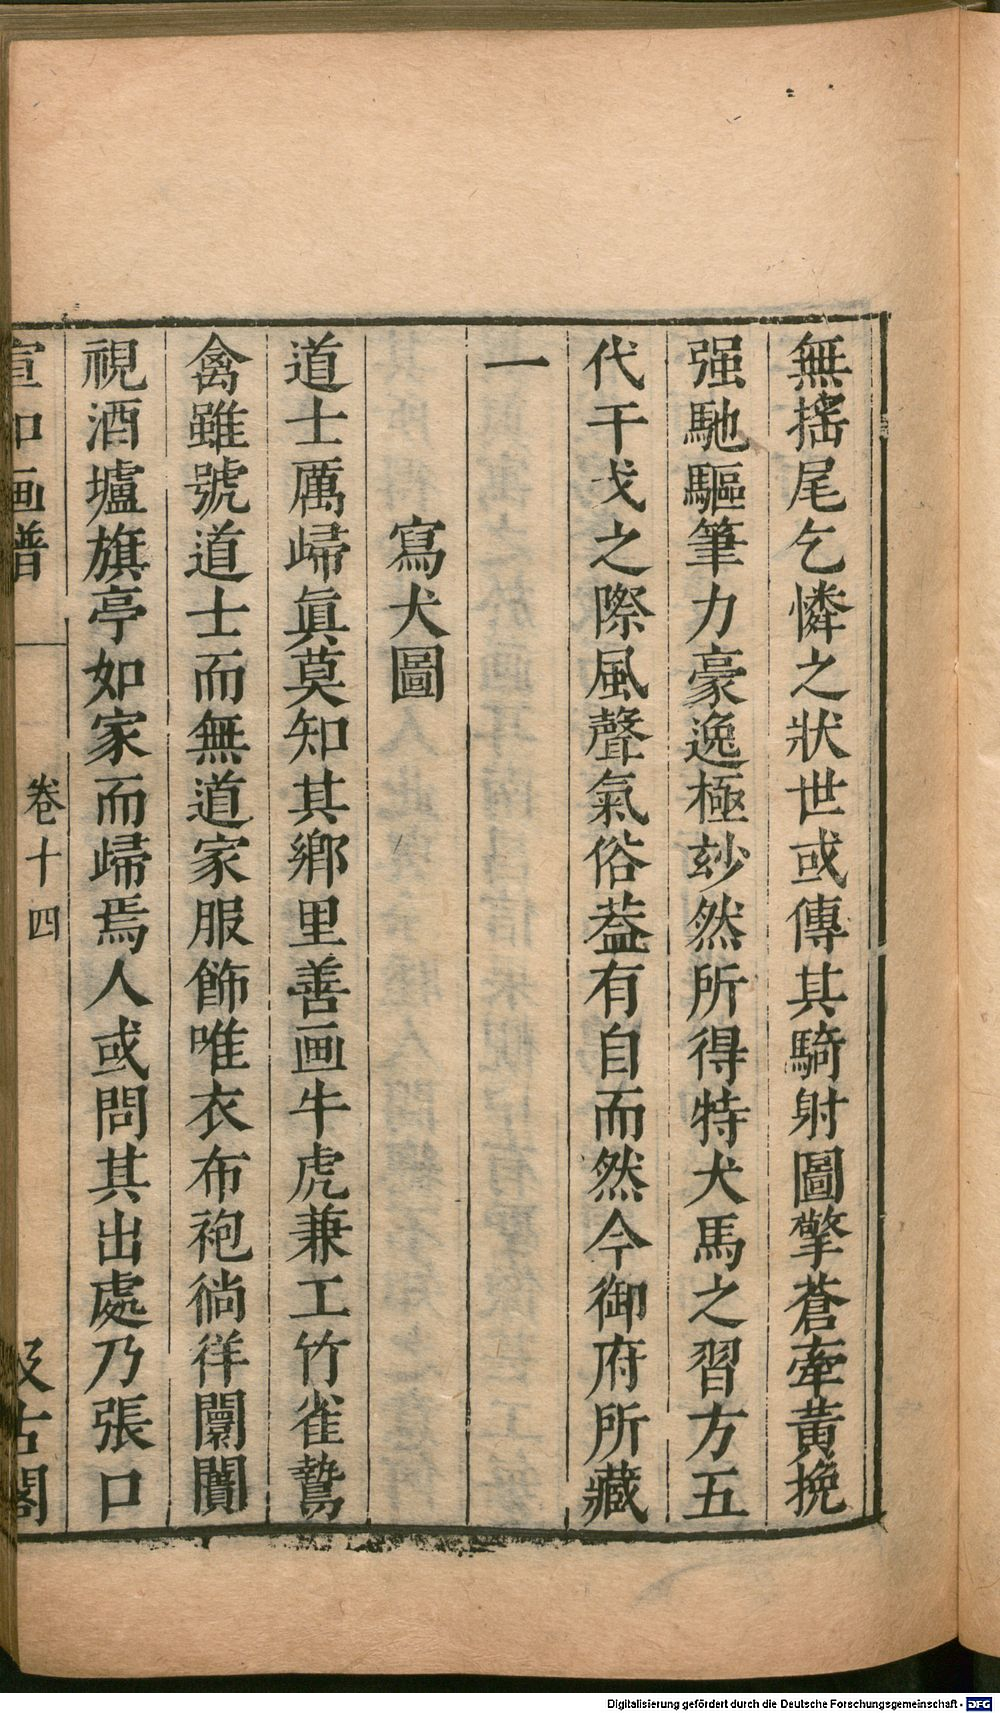 無搖尾乞憐之狀世或傳其騎射圖擎蒼牽黃挽
强馳驅筆力豪逸極玅然所得特犬馬之習方五
代干戈之際風聲氣俗葢有自而然今御府所藏
一
寫犬圖
道士厲歸眞莫知其鄉里善画牛虎兼工竹雀鷙
禽雖號道士而無道家服飾唯衣布袍徜徉闤闠
視酒壚旗亭如家而歸焉人或問其出處乃張口
宣和画譜
卷十四
汲古閣
Digitalisierung gefördert durch die Deutsche Forschungsgemeinschaft - DFG